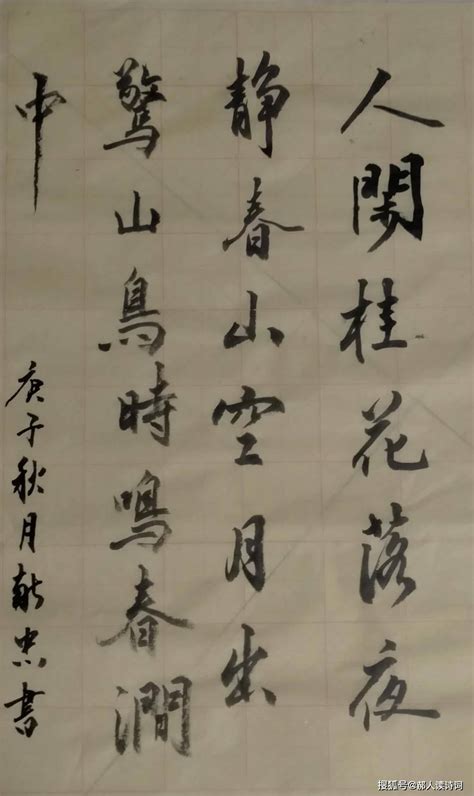 人閑桂花落夜
静春山空月出
驚山鳥時鳴春澗
中
庚子秋月忠書
搜狐号@郝人读诗词